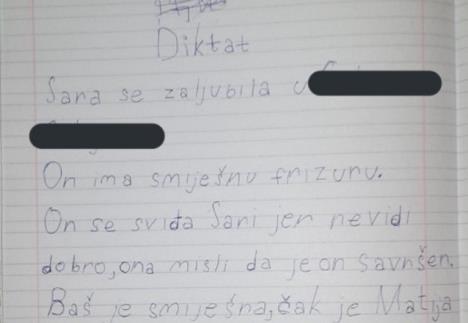 Diktat
Sana se zaljubila u
On ima smiješnu frizuru.
On se sviđa Sani jer nevidi
dobro, ona misli da je on savnšen.
Baš je smiješna, čak je Matija